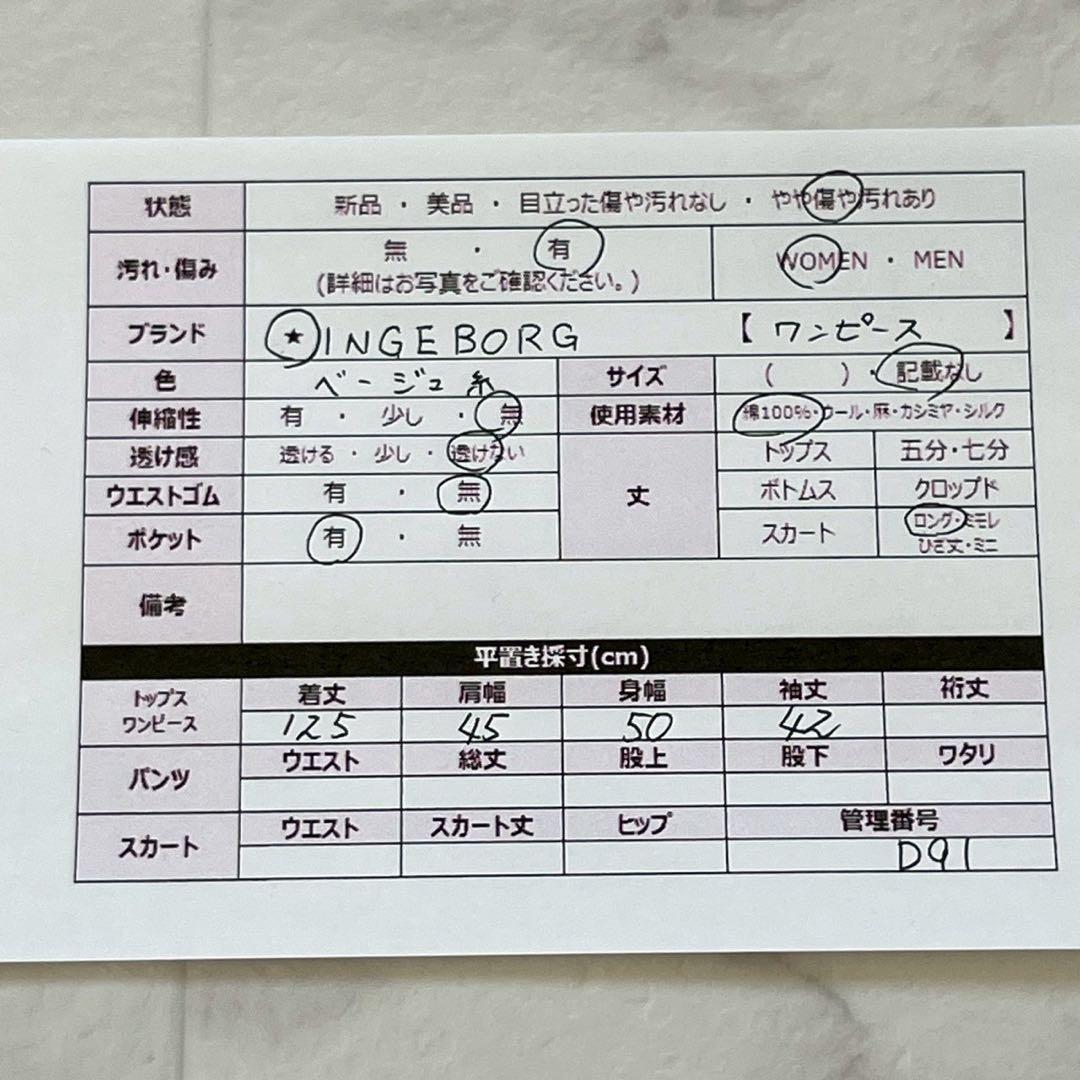 状態 新品 ・ 美品 ・ 目立った傷や汚れなし ・ やや傷や汚れあり
汚れ・傷み 無 ・ 有 WOMEN ・ MEN
(詳細はお写真をご確認ください。)
ブランド ★INGEBORG 【 ワンピース 】
色 ベージュ系 サイズ ( )・記載なし
伸縮性 有 ・ 少し ・ 無 使用素材 綿100%・ウール・麻・カシミヤ・シルク
透け感 透ける ・ 少し ・ 透けない 丈 トップス 五分・七分
ウエストゴム 有 ・ 無 ボトムス クロップド
ポケット 有 ・ 無 スカート ロング・ミモレ
ひざ丈・ミニ
備考
平置き採寸(cm)
トップス 着丈 肩幅 身幅 袖丈 裄丈
ワンピース 125 45 50 42
パンツ ウエスト 総丈 股上 股下 ワタリ
スカート ウエスト スカート丈 ヒップ 管理番号
D91